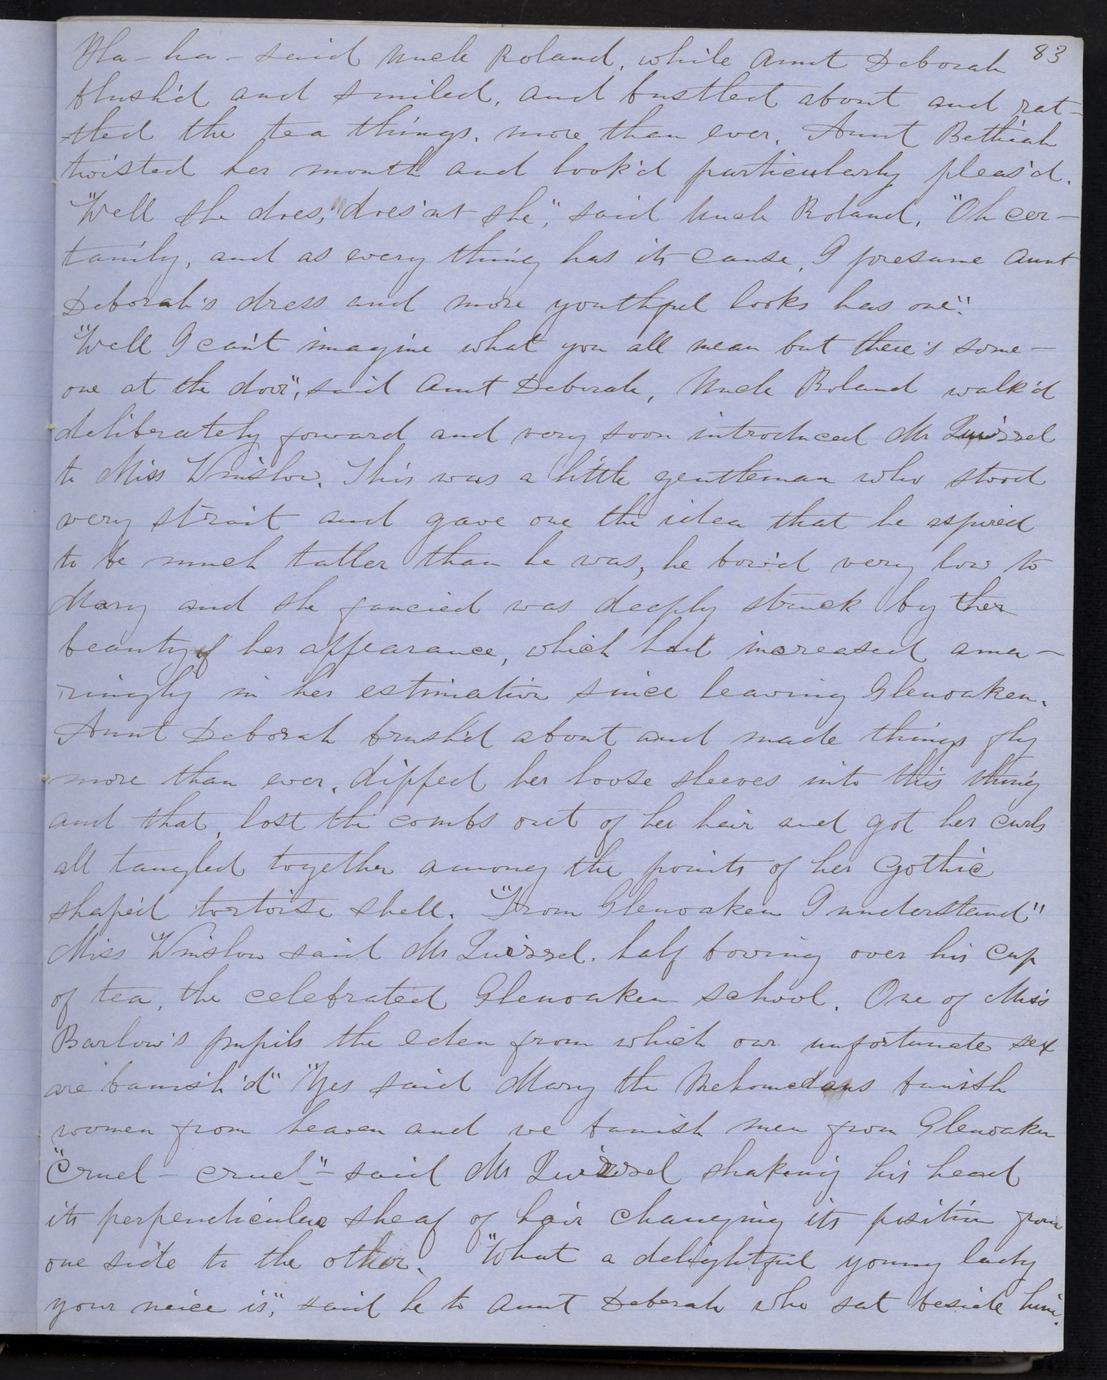 83
Ha - ha - said Uncle Roland, while Aunt Deborah
blush'd and smiled, and bustled about and rat-
tled the tea things, more than ever. Aunt Bethiah
twisted her mouth and look'd particularly pleas'd.
"Well she does, does'nt she", said Uncle Roland. "Oh cer-
tainly, and as every thing has its cause, I presume Aunt
Deborah's dress and more youthful looks has one".
"Well I can't imagine what you all mean but there's some-
one at the door", said Aunt Deborah, Uncle Roland walk'd
deliberately forward and very soon introduced Mr Quirrel
to Miss Winslow. This was a little gentleman who stood
very strait and gave one the idea that he aspired
to be much taller than he was, he bow'd very low to
Mary and she fancied was deeply struck by ther
beauty of her appearance, which had increased ama-
zingly in her estimation since leaving Glenoaken.
Aunt Deborah brush'd about and made things fly
more than ever, dipped her loose sleeves into this thing
and that, lost the combs out of her hair and got her curls
all tangled together among the points of her Gothic
shap'd tortoise shell. "From Glenoaken I understand"
Miss Winslow said Mr Quirrel, half bowing over his cup
of tea, the celebrated Glenoaken school. One of Miss
Barlow's pupils the eden from which our unfortunate sex
are banish'd" "Yes said Mary the Mehomedans banish
women from heaven and we banish men from Glenoaken
"Cruel - cruel" - said Mr Quirrel shaking his head
its perpendicular sheaf of hair changing its position from
one side to the other. "What a delightful young lady
your neice is", said he to Aunt Deborah who sat beside him.